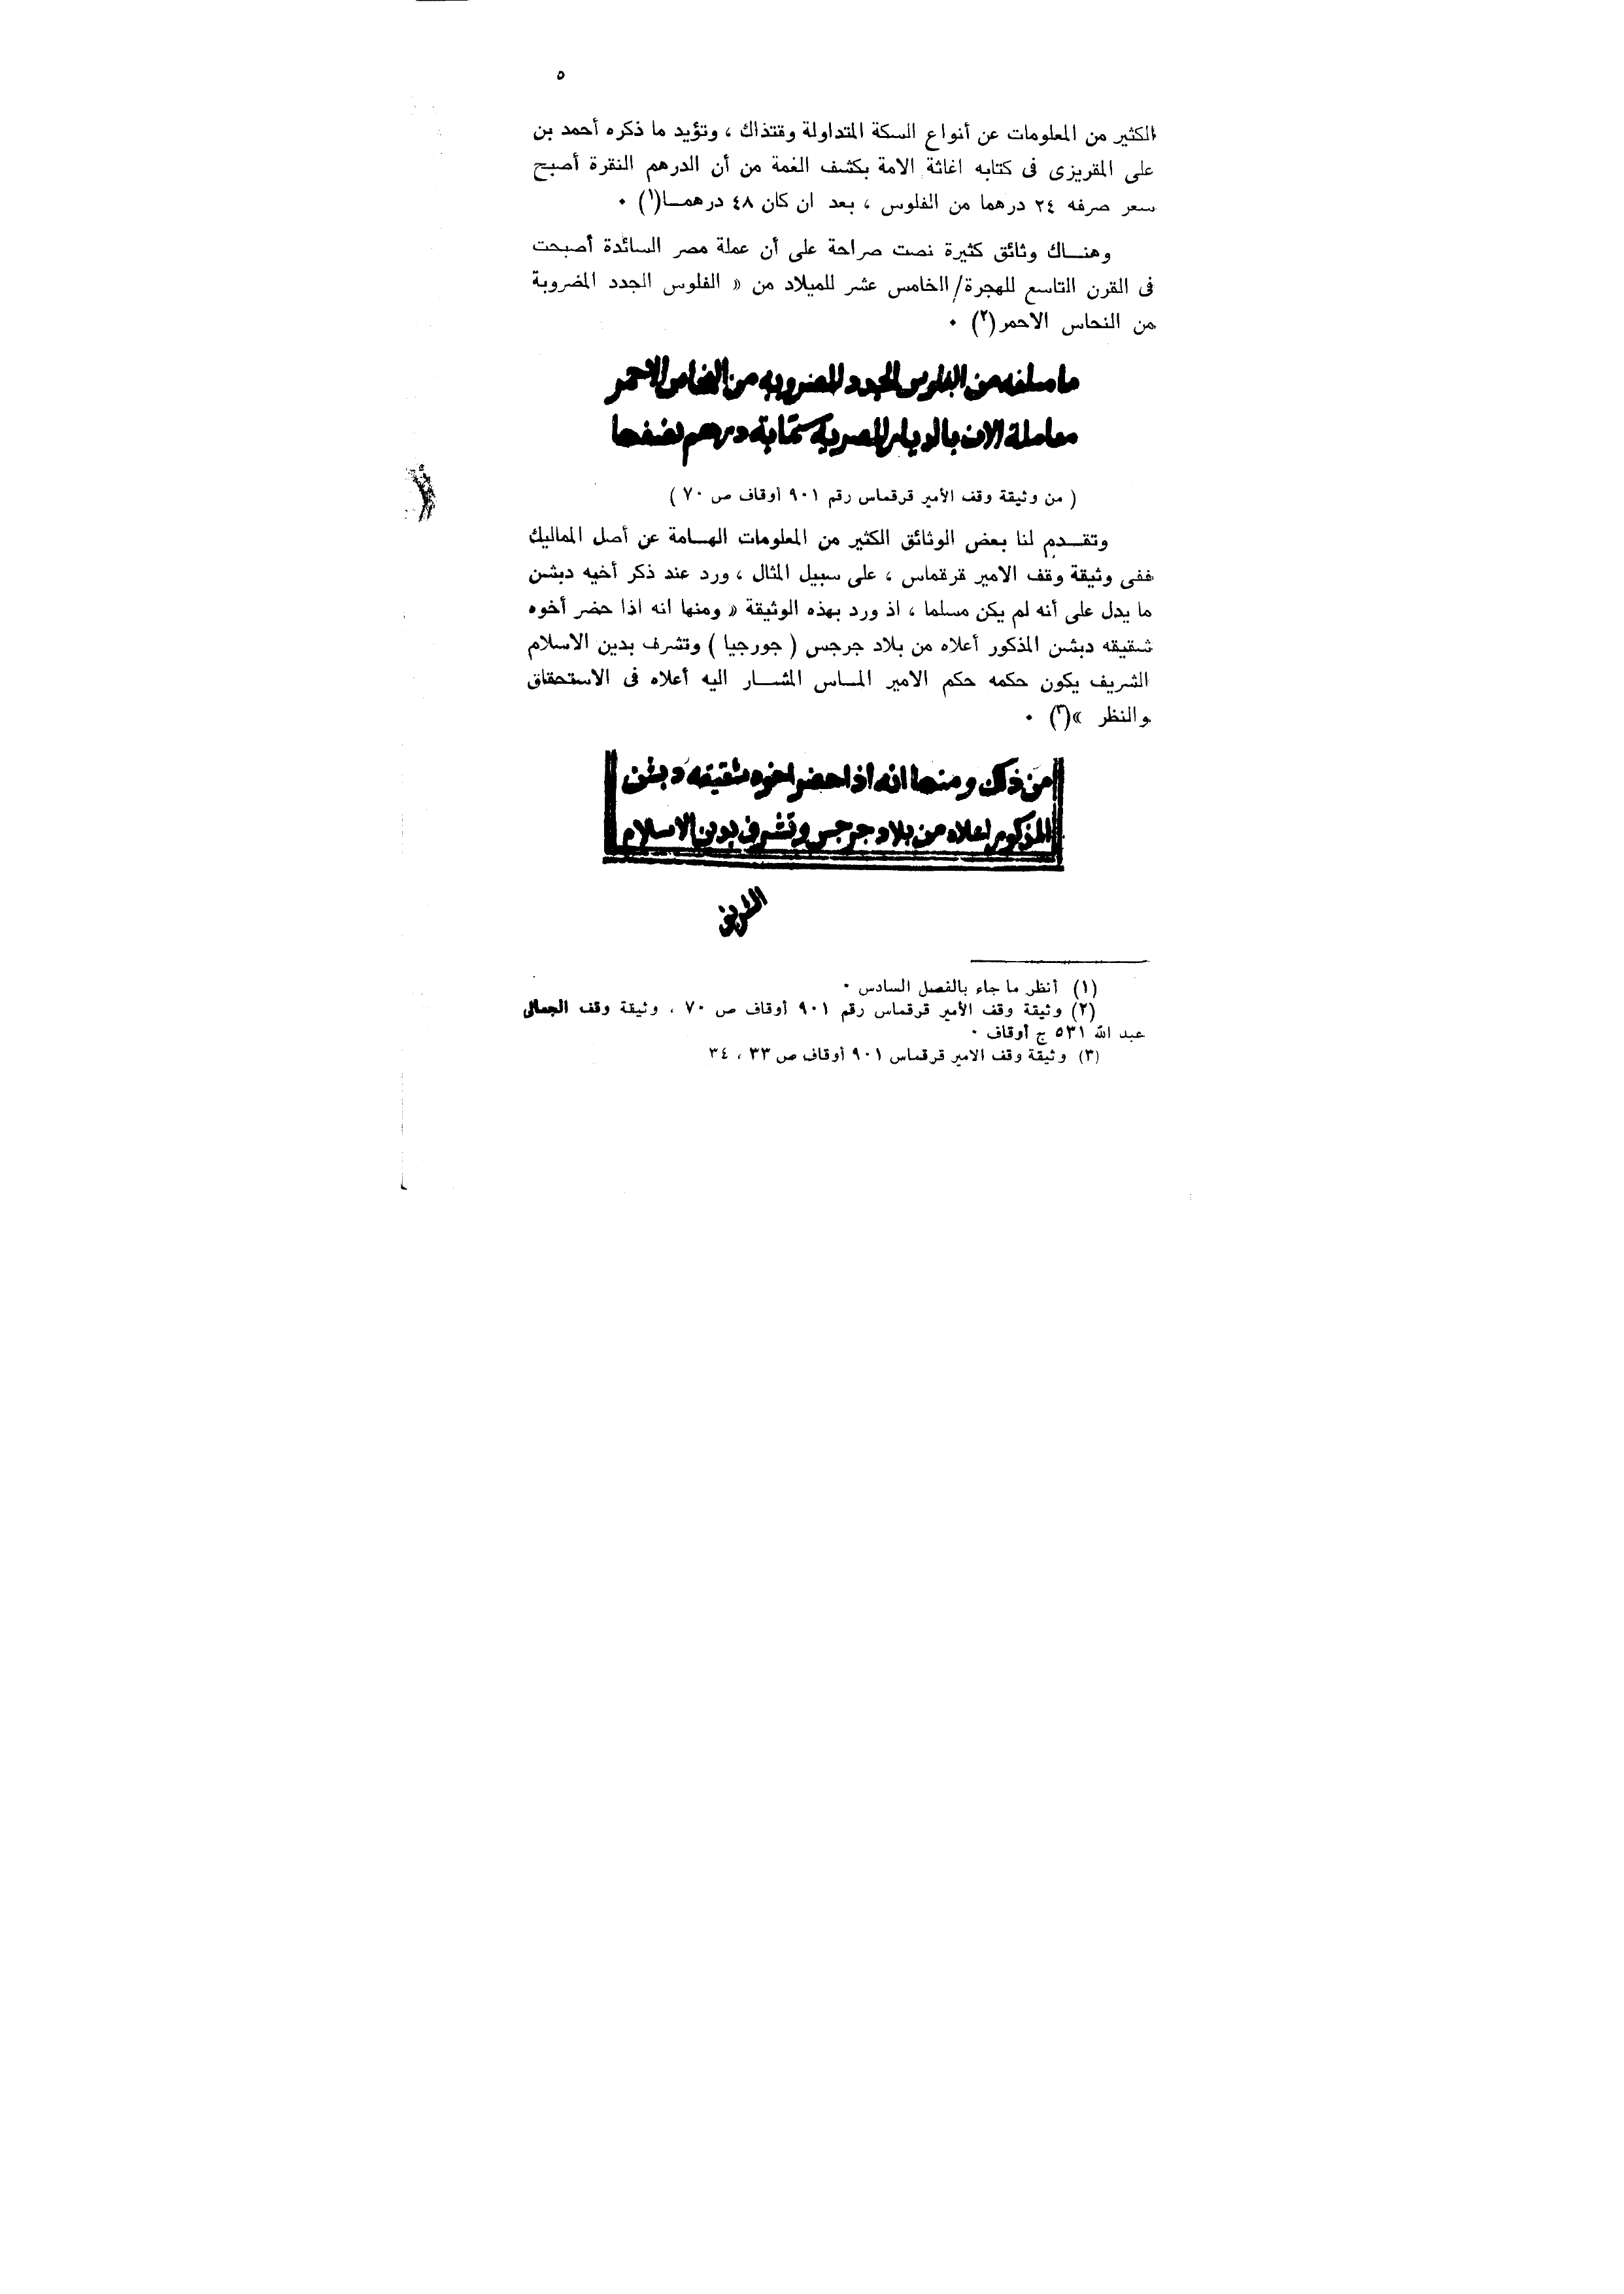 ٥
الكثير من المعلومات عن أنواع السكة المتداولة وقتذاك ، وتؤيد ما ذكره أحمد بن
على المقريزى فى كتابه اغاثة الامة بكشف الغمة من أن الدرهم النقرة أصبح
سعر صرفه ٢٤ درهما من الفلوس ، بعد ان كان ٤٨ درهمــا(١) ٠
وهنــاك وثائق كثيرة نصت صراحة على أن عملة مصر السائدة أصبحت
فى القرن التاسع للهجرة/الخامس عشر للميلاد من « الفلوس الجدد المضروبة
من النحاس الاحمر(٢) ٠
ما مبلغه من الفلوس الجدد المضروبه من النحاس الاحمر
معاملة الان بالديار المصرية ستماية درهم نصفها
( من وثيقة وقف الأمير قرقماس رقم ٩٠١ أوقاف ص ٧٠ )
وتقــدم لنا بعض الوثائق الكثير من المعلومات الهــامة عن أصل المماليك
ففى وثيقة وقف الامير قرقماس ، على سبيل المثال ، ورد عند ذكر أخيه دبشن
ما يدل على أنه لم يكن مسلما ، اذ ورد بهذه الوثيقة « ومنها انه اذا حضر أخوه
شقيقه دبشن المذكور أعلاه من بلاد جرجس ( جورجيا ) وتشرف بدين الاسلام
الشريف يكون حكمه حكم الامير المــاس المشــار اليه أعلاه فى الاستحقاق
والنظر »(٣) ٠
من ذلك ومنها انه اذا حضر اخوه شقيقه دبشن
المذكور اعلاه من بلاد جرجس وتشرف بدين الاسلام
الشريف
(١) أنظر ما جاء بالفصل السادس ٠
(٢) وثيقة وقف الأمير قرقماس رقم ٩٠١ أوقاف ص ٧٠ ، وثيقة وقف الجمالى
عبد الله ٥٣١ ج أوقاف ٠
(٣) وثيقة وقف الامير قرقماس ٩٠١ أوقاف ص ٣٣ ، ٣٤